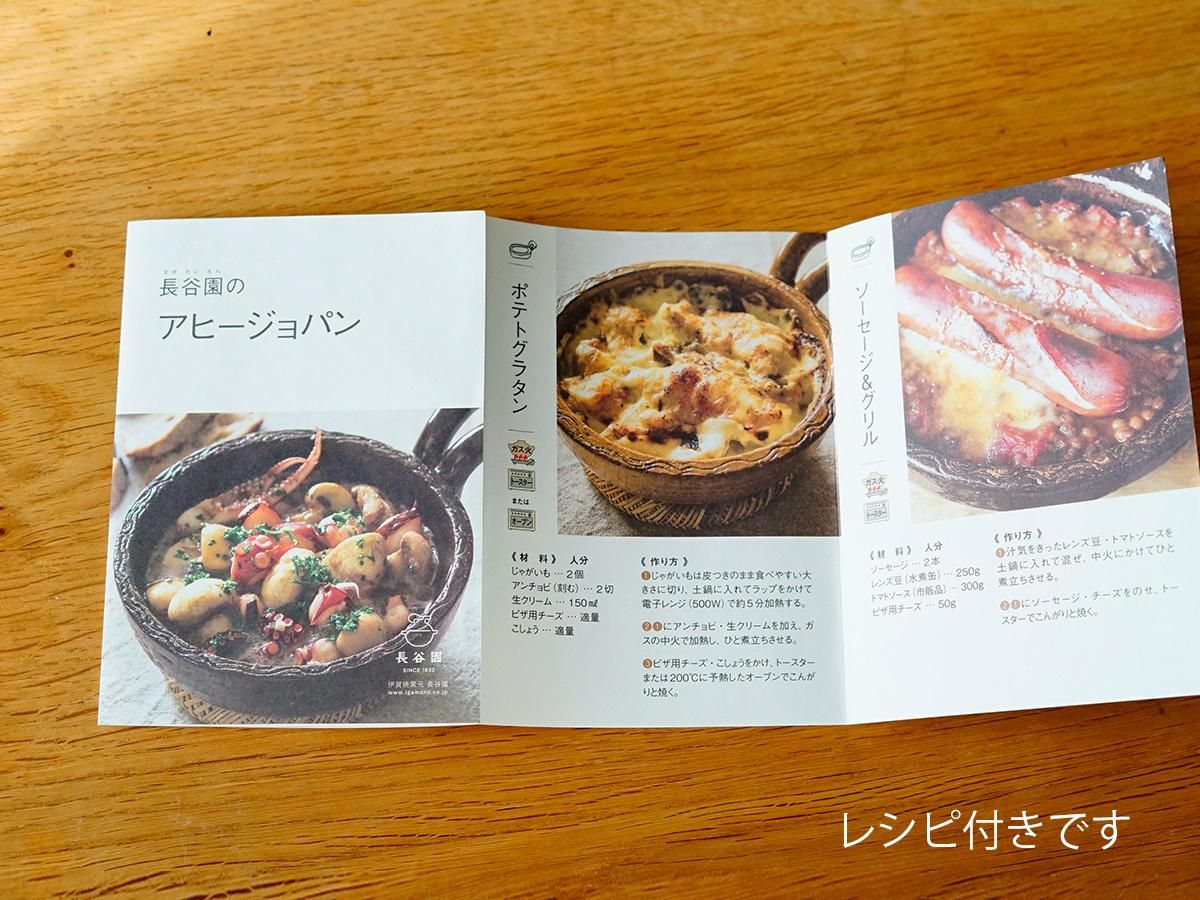 ながたにえん
長谷園の
アヒージョパン
長谷園
SINCE 1832
伊賀焼窯元 長谷園
www.igamono.co.jp
ポテトグラタン
ガス火
トースター
または
オーブン
《 材 料 》 人分
じゃがいも … 2個
アンチョビ(刻む) … 2切
生クリーム … 150㎖
ピザ用チーズ … 適量
こしょう … 適量
《 作り方 》
❶じゃがいもは皮つきのまま食べやすい大
きさに切り、土鍋に入れてラップをかけて
電子レンジ(500W)で約5分加熱する。
❷❶にアンチョビ・生クリームを加え、ガ
スの中火で加熱し、ひと煮立ちさせる。
❸ピザ用チーズ・こしょうをかけ、トースター
または200℃に予熱したオーブンでこんが
りと焼く。
ソーセージ&グリル
ガス火
トースター
《 材 料 》 人分
ソーセージ … 2本
レンズ豆(水煮缶) … 250g
トマトソース(市販品) … 300g
ピザ用チーズ … 50g
《 作り方 》
❶汁気をきったレンズ豆・トマトソースを
土鍋に入れて混ぜ、中火にかけてひと
煮立ちさせる。
❷❶にソーセージ・チーズをのせ、トー
スターでこんがりと焼く。
レシピ付きです